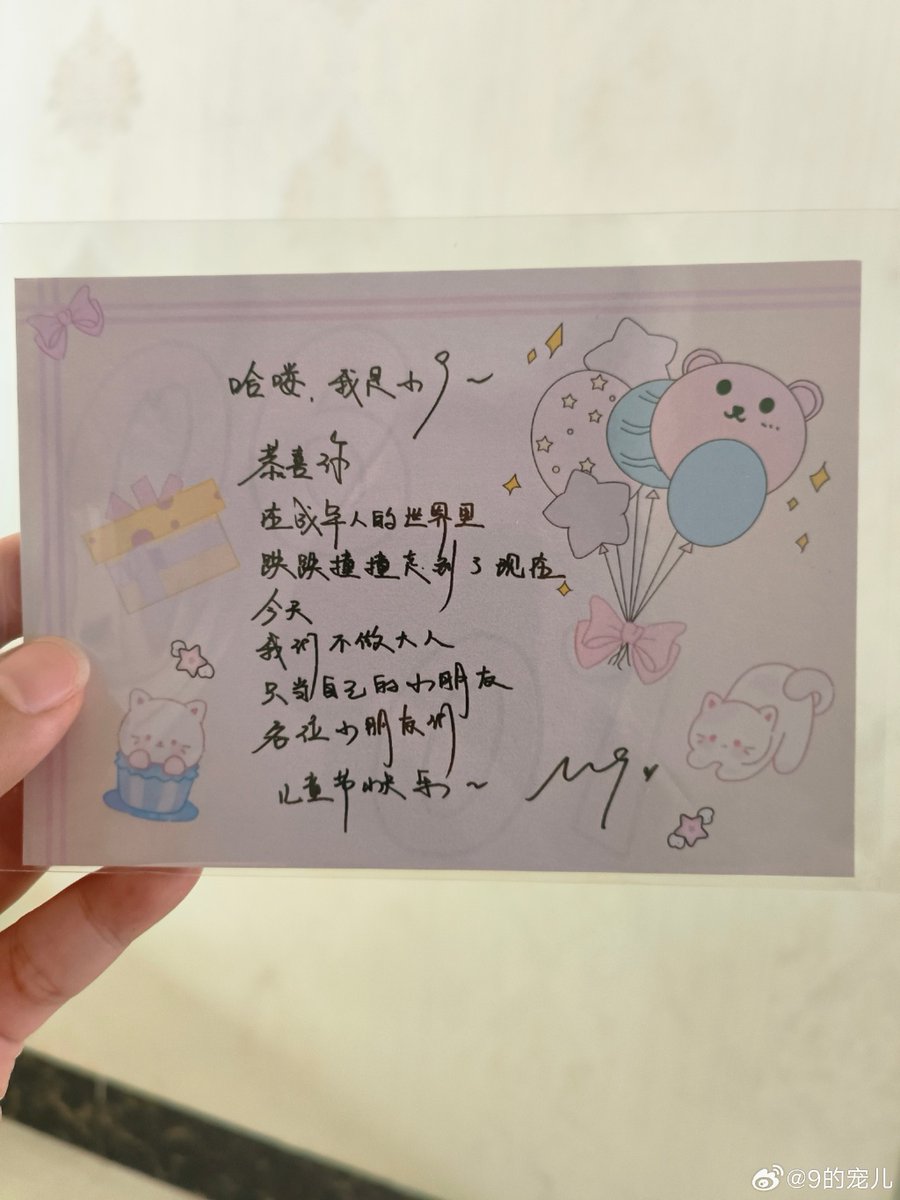 哈喽,我是小9~
恭喜你
在成年人的世界里
跌跌撞撞走到了现在
今天
我们不做大人
只当自己的小朋友
各位小朋友们
儿童节快乐~
@9的宠儿